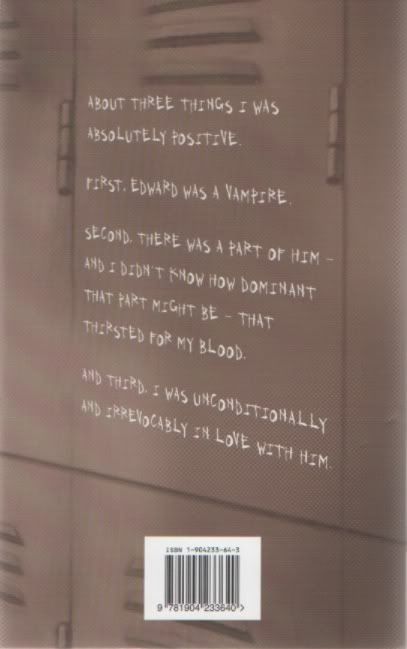 ABOUT THREE THINGS I WAS
ABSOLUTELY POSITIVE.
FIRST, EDWARD WAS A VAMPIRE.
SECOND, THERE WAS A PART OF HIM –
AND I DIDN'T KNOW HOW DOMINANT
THAT PART MIGHT BE – THAT
THIRSTED FOR MY BLOOD.
AND THIRD, I WAS UNCONDITIONALLY
AND IRREVOCABLY IN LOVE WITH HIM.
ISBN 1-904233-64-3
9 781904 233640 >